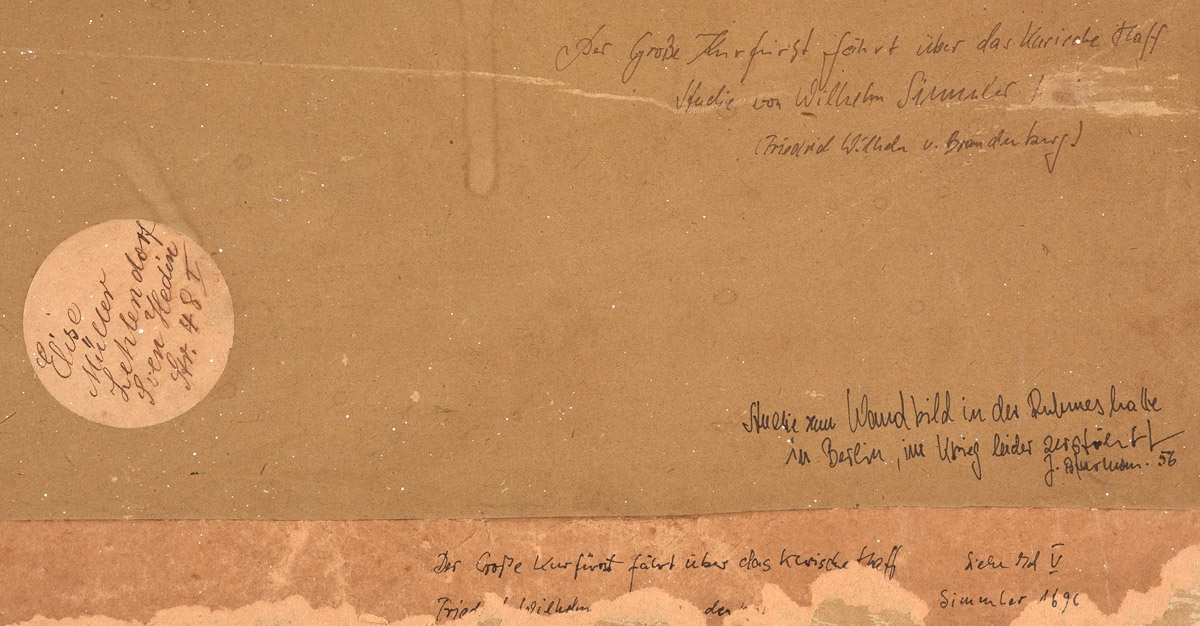 Der Große Kurfürst fährt über das Kurische Haff
Studie von Wilhelm Simmler !
(Friedrich Wilhelm v. Brandenburg)
Elise
Müller
Zehlendorf
Sven Hedin
Str. 48 I
Studie zum Wandbild in der Ruhmeshalle
in Berlin, im Krieg leider zerstört
J. 56
Der Große Kurfürst fährt über das Kurische Haff
Siehe Bd V
Wilhelm
Simmler